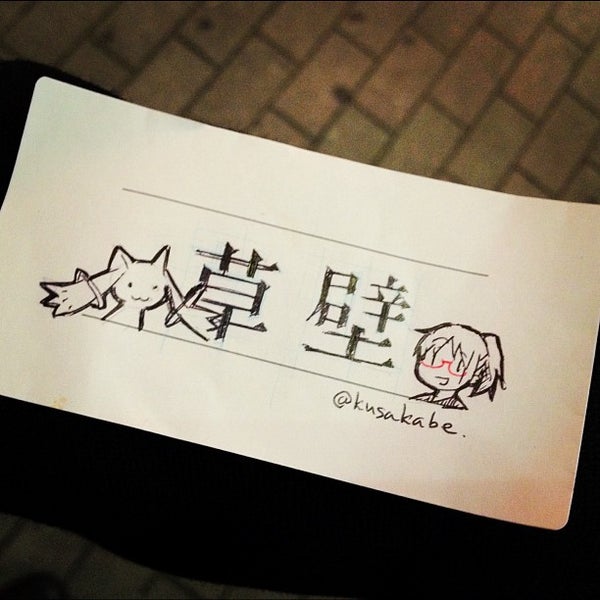 草壁
@kusakabe.